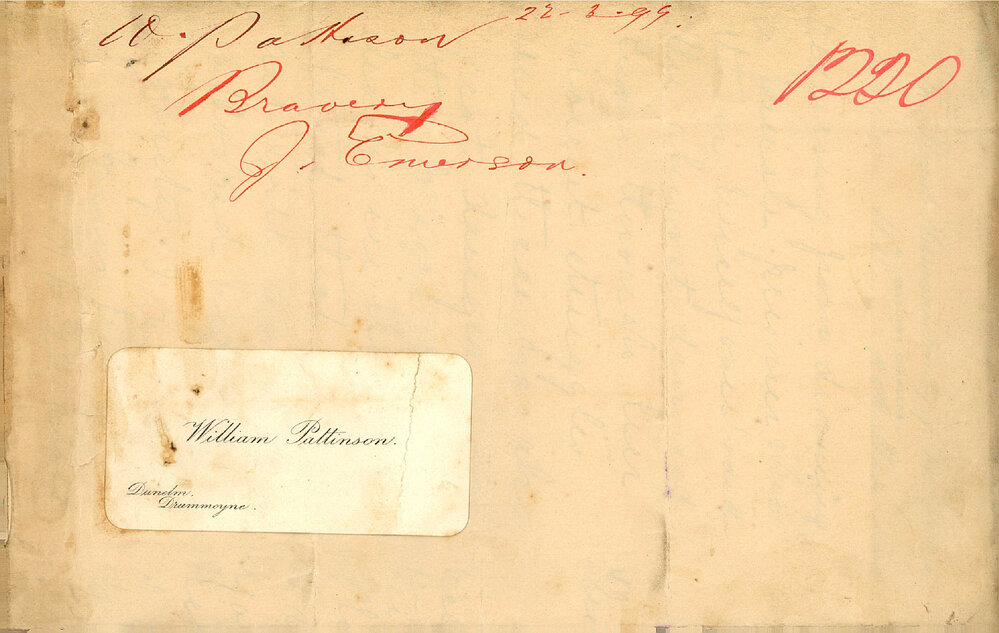 W. Pattison 22-3-99.
1220
Bravery
J. Emerson.
William Pattinson.
Dunelm.
Drummoyne.